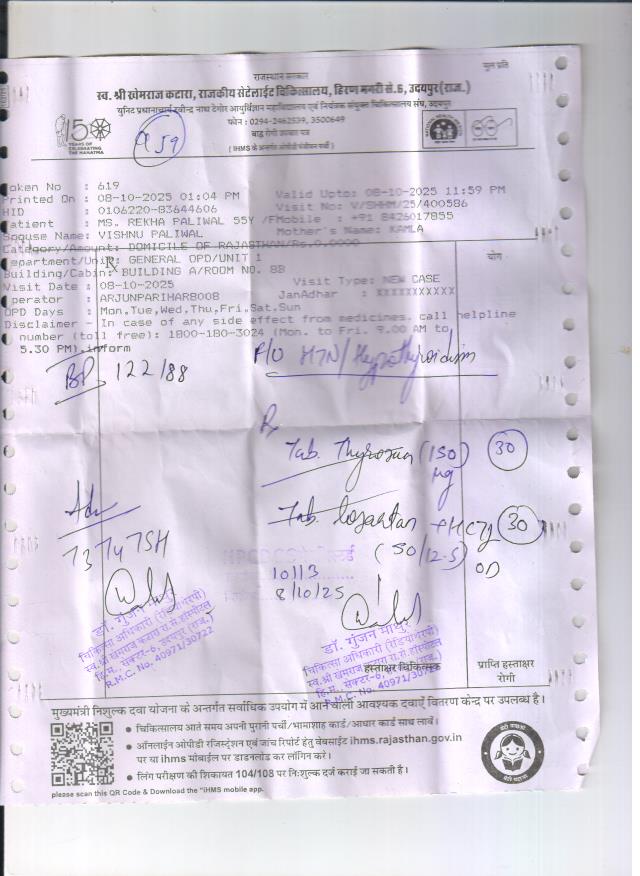 राजस्थान सरकार
मूल प्रति
स्व. श्री खेमराज कटारा, राजकीय सेटेलाईट चिकित्सालय, हिरण मगरी से.6, उदयपुर(राज.)
युनिट प्रधानाचार्य रवीन्द्र नाथ टेगोर आयुर्विज्ञान महाविद्यालय एवं नियंत्रक संयुक्त चिकित्सालय संघ, उदयपुर
फोन : 0294-2462539, 3500649
बाह्य रोगी उपचार पत्र
( IHMS के अन्तर्गत ओपीडी पंजीयन पर्ची )
150
YEARS OF CELEBRATING THE MAHATMA
oken No : 619
Printed On : 08-10-2025 01:04 PM Valid Upto: 08-10-2025 11:59 PM
HID : 0106220-83644606 Visit No: V/SHHM/25/400586
atient : MS. REKHA PALIWAL 55Y /F Mobile : +91 8426017855
Spouse Name: VISHNU PALIWAL Mother's Name: KAMLA
Category/Amount: DOMICILE OF RAJASTHAN/Rs.0.0000
Department/Unit: GENERAL OPD/UNIT 1
योग
Building/Cabin: BUILDING A/ROOM NO. 8B
Visit Date : 08-10-2025 Visit Type: NEW CASE
perator : ARJUNPARIHAR8008 JanAdhar : XXXXXXXXXXX
OPD Days : Mon,Tue,Wed,Thu,Fri,Sat,Sun
Disclaimer - In case of any side effect from medicines. call helpline
number (toll free): 1800-180-3024 (Mon. to Fri. 9.00 AM to
5.30 PM).inform
BP 122/88
F/U HTN/Hypothyroidism
Rx
Tab. (150) 30
µg
Adv
Tab. Losartan + HCTZ 30
T3 T4 TSH
(50/12.5) OD
10113
8/10/25
डॉ. गुंजन
चिकित्सा अधिकारी (रेडियोथेरेपी)
R.M.C. No. 40971/30722
डॉ. गुंजन
चिकित्सा अधिकारी (रेडियोथेरेपी)
R.M.C. No. 40971/30722
हस्ताक्षर चिकित्सक
प्राप्ति हस्ताक्षर
रोगी
मुख्यमंत्री निशुल्क दवा योजना के अन्तर्गत सर्वाधिक उपयोग में आने वाली आवश्यक दवाएँ वितरण केन्द्र पर उपलब्ध है।
• चिकित्सालय आते समय अपनी पुरानी पर्ची/भामाशाह कार्ड/आधार कार्ड साथ लावें।
• ऑनलाईन ओपीडी रजिस्ट्रेशन एवं जांच रिपोर्ट हेतु वेबसाईट ihms.rajasthan.gov.in
पर या ihms मोबाईल पर डाउनलोड कर लॉगिन करे।
• लिंग परीक्षण की शिकायत 104/108 पर निःशुल्क दर्ज कराई जा सकती है।
please scan this QR Code & Download the "iHMS mobile app.